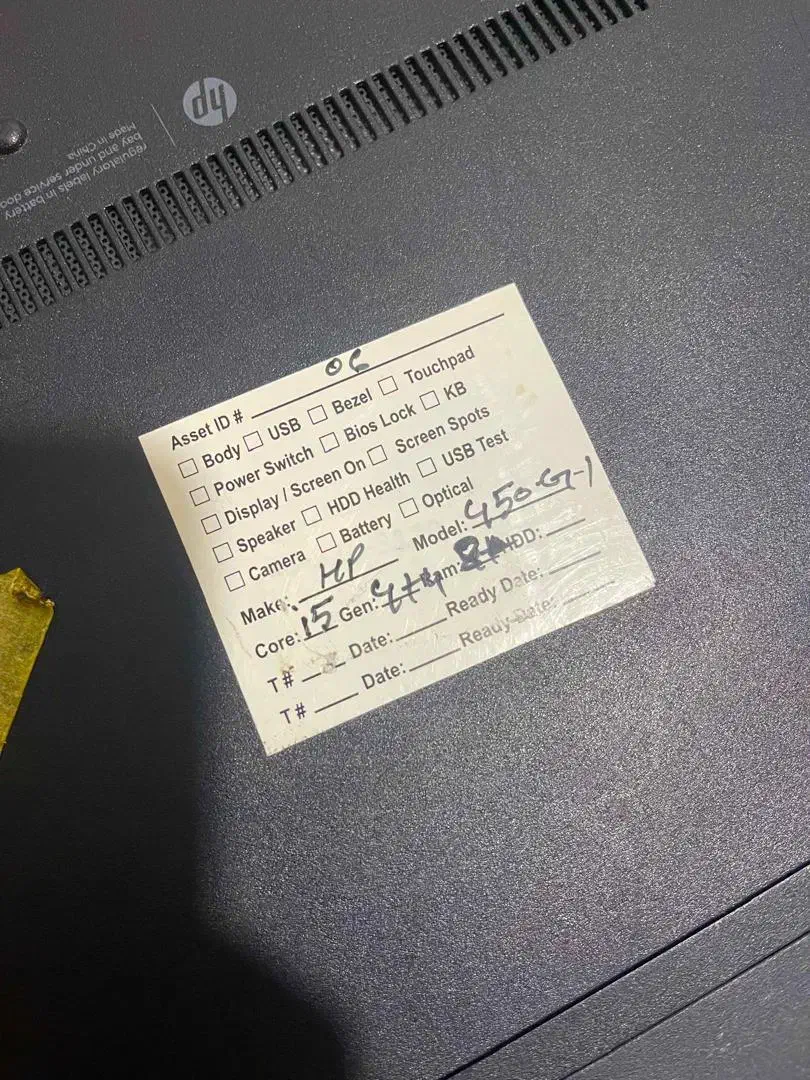 hp
regulatory labels in battery
bay and under service doo
Made in China
Asset ID # 06
Body USB Bezel Touchpad
Power Switch Bios Lock KB
Display / Screen On Screen Spots
Speaker HDD Health USB Test
Camera Battery Optical
Make: HP Model: 450-G-1
Core: i5 Gen: HDD:
T# Date: Ready Date:
T# Date: Ready Date: